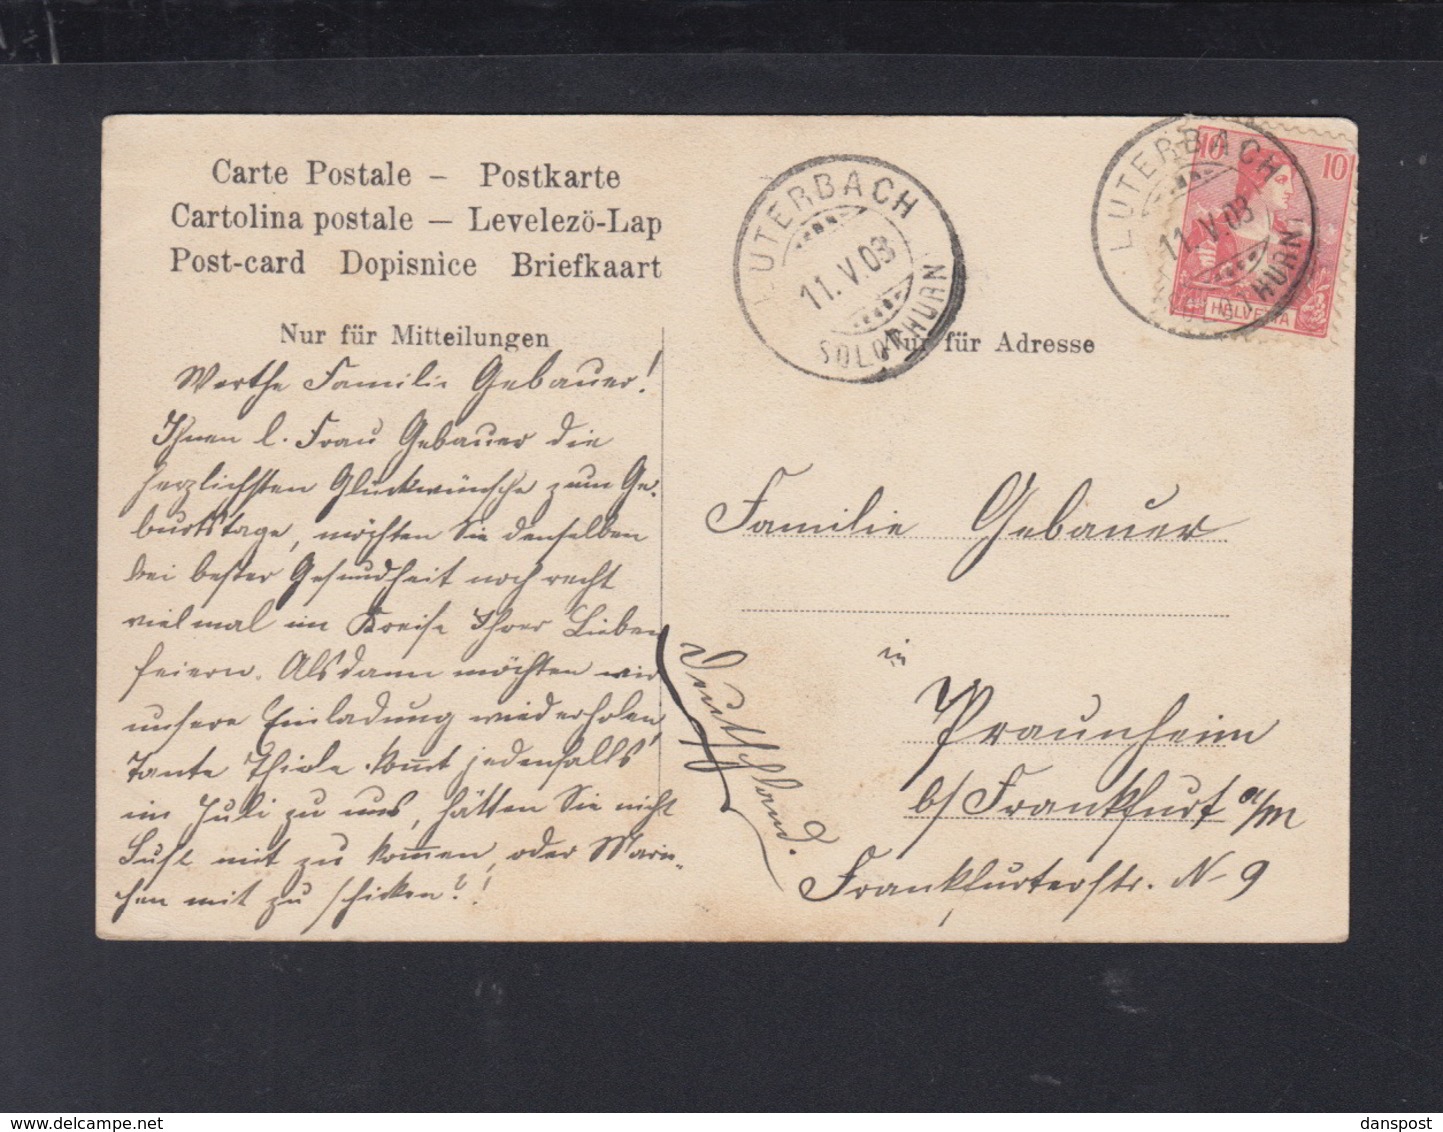 Carte Postale – Postkarte
Cartolina postale — Levelezö-Lap
Post-card Dopisnice Briefkaart
Nur für Mitteilungen
Nur für Adresse
LUTERBACH
11. V. 08
SOLOTHURN
LUTERBACH
11. V. 08
(SOLOTHURN)
10 10
HELVETIA
Werthe Familie Gebauer!
Ihnen l. Frau Gebauer die
herzlichsten Glückwünsche zum Ge-
burtstage, möchten Sie denselben
bei bester Gesundheit noch recht
viel mal im Kreise Ihrer Lieben
feiern. Alsdann möchten wir
unsere Einladung wiederholen,
Tante Thiele kommt jedenfalls
im Juli zu uns, hätten Sie nicht
Lust mit zu kommen, oder Marie-
chen mit zu schicken?!
Familie Gebauer
in
Praunheim
b/ Frankfurt a/M
Frankfurterstr. N 9
Deutschland.
www.delcampe.net
danspost